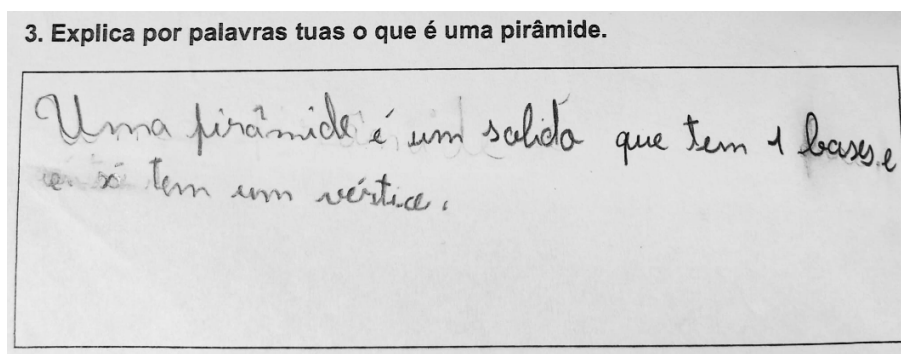 3. Explica por palavras tuas o que é uma pirâmide.
Uma pirâmide é um solido que tem 1 bases e
só tem um vértice.